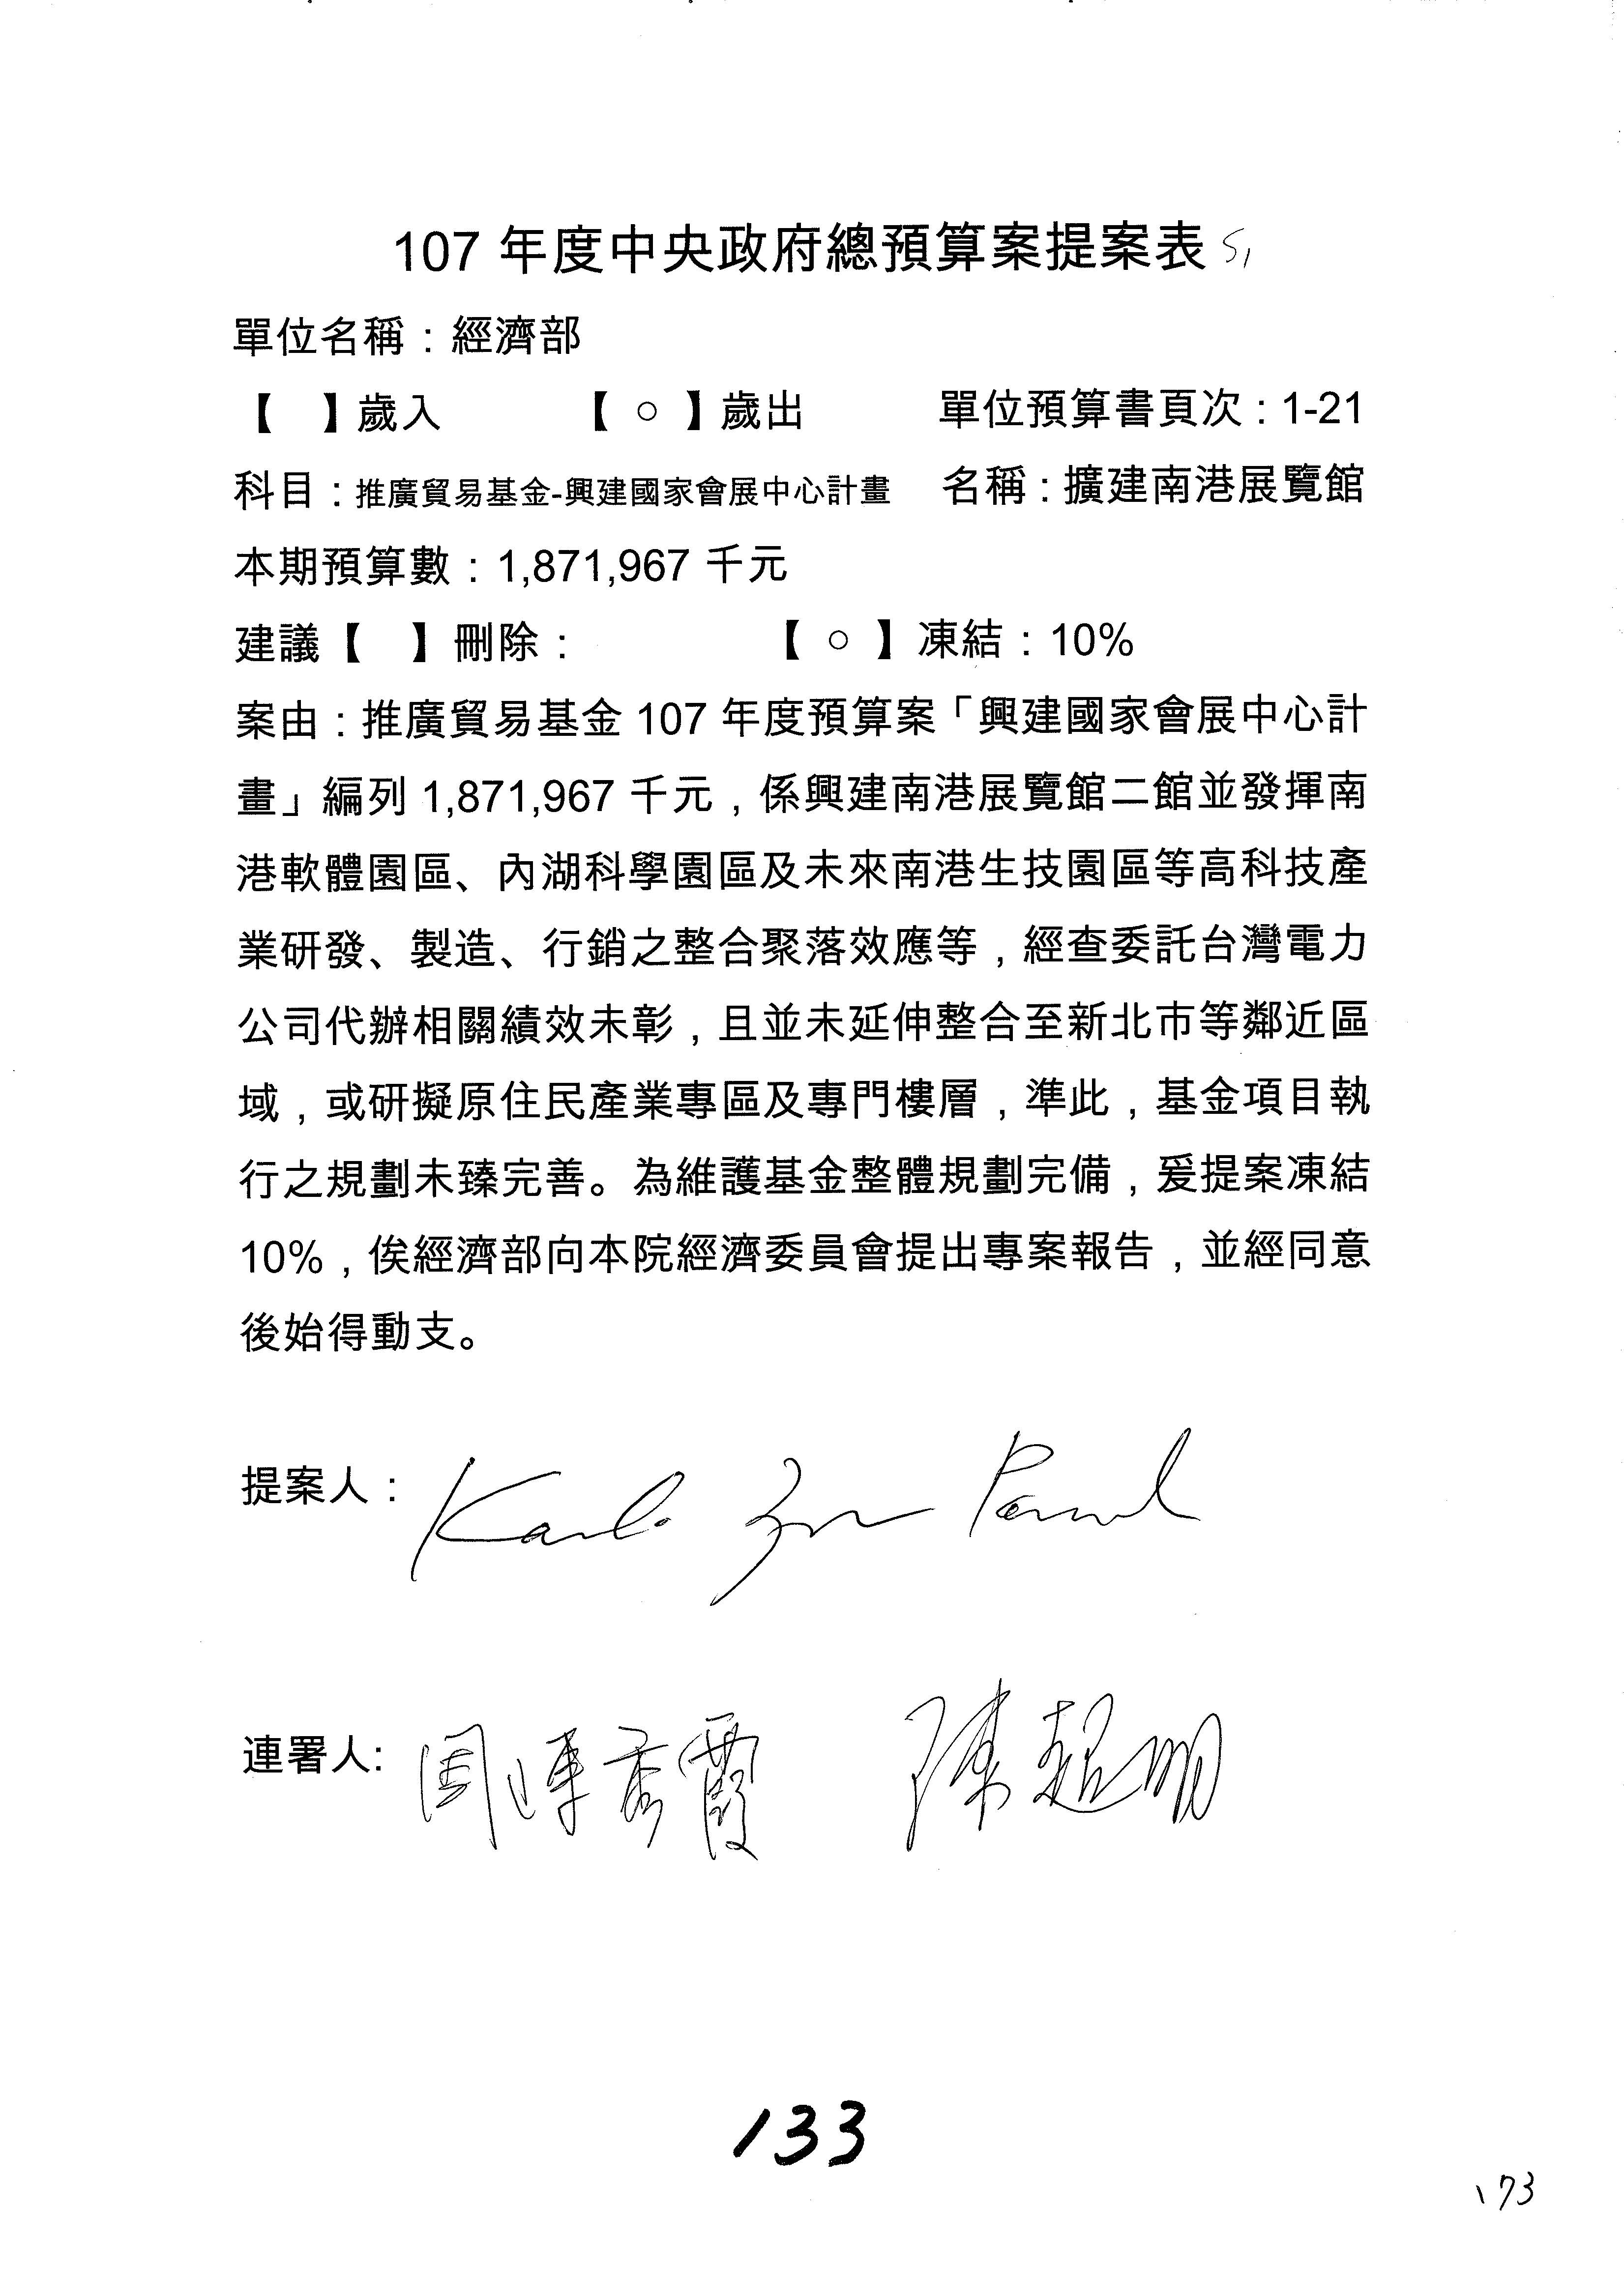 107 年度中央政府總預算案提案表 51
單位名稱：經濟部
【　】歲入　【○】歲出　單位預算書頁次：1-21
科目：推廣貿易基金-興建國家會展中心計畫　名稱：擴建南港展覽館
本期預算數：1,871,967 千元
建議【　】刪除：　【○】凍結：10%
案由：推廣貿易基金 107 年度預算案「興建國家會展中心計
畫」編列 1,871,967 千元，係興建南港展覽館二館並發揮南
港軟體園區、內湖科學園區及未來南港生技園區等高科技產
業研發、製造、行銷之整合聚落效應等，經查委託台灣電力
公司代辦相關績效未彰，且並未延伸整合至新北市等鄰近區
域，或研擬原住民產業專區及專門樓層，準此，基金項目執
行之規劃未臻完善。為維護基金整體規劃完備，爰提案凍結
10%，俟經濟部向本院經濟委員會提出專案報告，並經同意
後始得動支。
提案人：
連署人: 周陳秀霞　陳超明
133
173